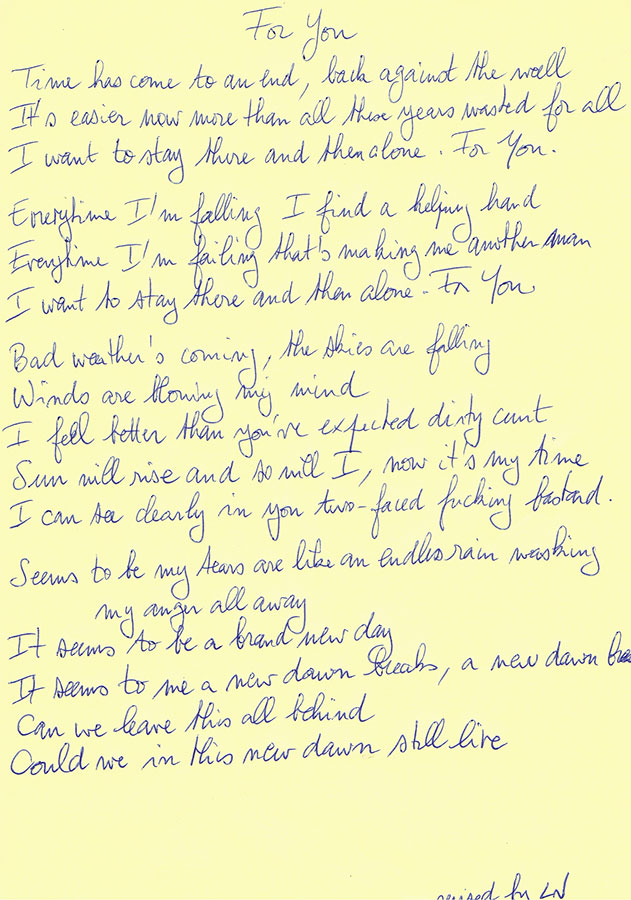 For You
Time has come to an end, back against the wall
It's easier now more than all these years wasted for all
I want to stay there and then alone. For You.
Everytime I'm falling I find a helping hand
Everytime I'm failing that's making me another man
I want to stay there and then alone - For You
Bad weather's coming, the skies are falling
Winds are blowing my mind
I feel better than you've expected dirty cunt
Sun will rise and so will I, now it's my time
I can see clearly in you two-faced fucking bastard.
Seems to be my tears are like an endless rain washing
my anger all away
It seems to be a brand new day
It seems to me a new dawn breaks, a new dawn
Can we leave this all behind
Could we in this new dawn still live
by LN